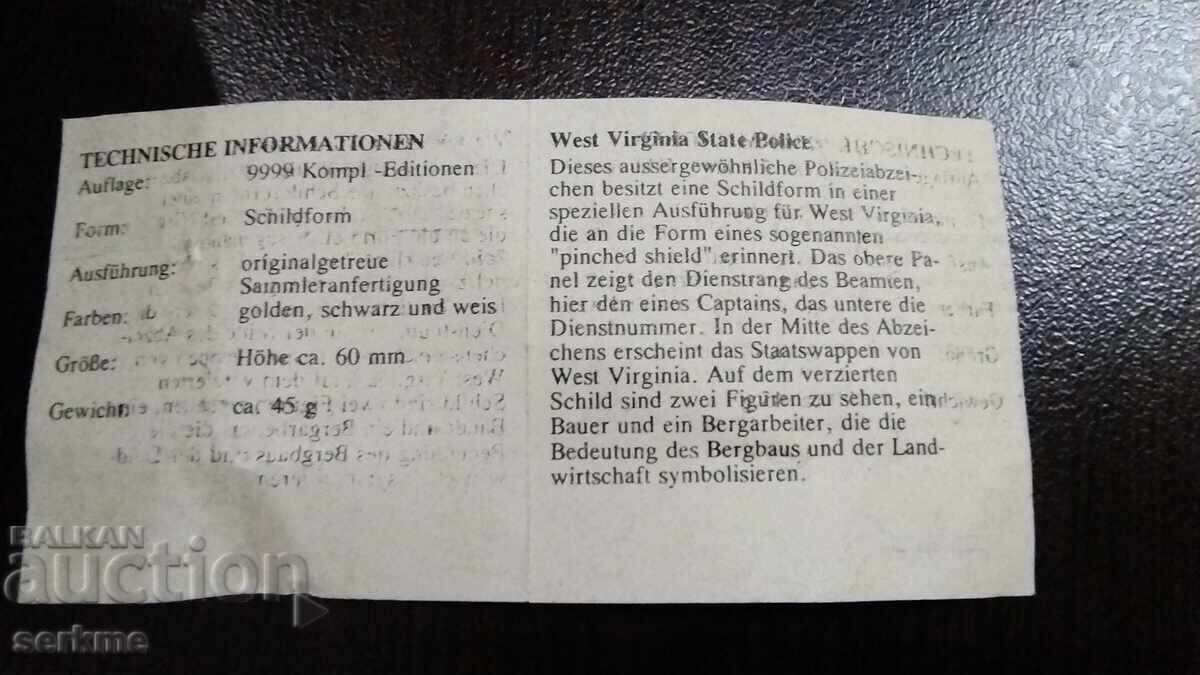 TECHNISCHE INFORMATIONEN
Auflage: 9999 Kompl -Editionen
Form: Schildform
Ausführung: originalgetreue
Sammleranfertigung
Farben: golden, schwarz und weis
Größe: Höhe ca. 60 mm
Gewicht: ca. 45 g
West Virginia State Police
Dieses aussergewöhnliche Polizeiabzei-
chen besitzt eine Schildform in einer
speziellen Ausführung für West Virginia,
die an die Form eines sogenannten
"pinched shield" erinnert. Das obere Pa-
nel zeigt den Dienstrang des Beamten,
hier den eines Captains, das untere die
Dienstnummer. In der Mitte des Abzei-
chens erscheint das Staatswappen von
West Virginia. Auf dem verzierten
Schild sind zwei Figuren zu sehen, ein
Bauer und ein Bergarbeiter, die die
Bedeutung des Bergbaus und der Land-
wirtschaft symbolisieren.
BALKAN
auction
serkme